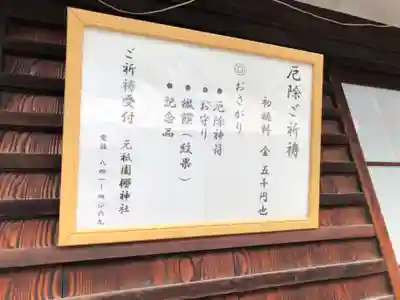 厄除ご祈祷
初穂料 金 五千円也
◎おさがり
●厄除神符
●お守り
●撤饌（紋菓）
●記念品
ご祈祷受付 元祇園梛神社
電話 八四一－